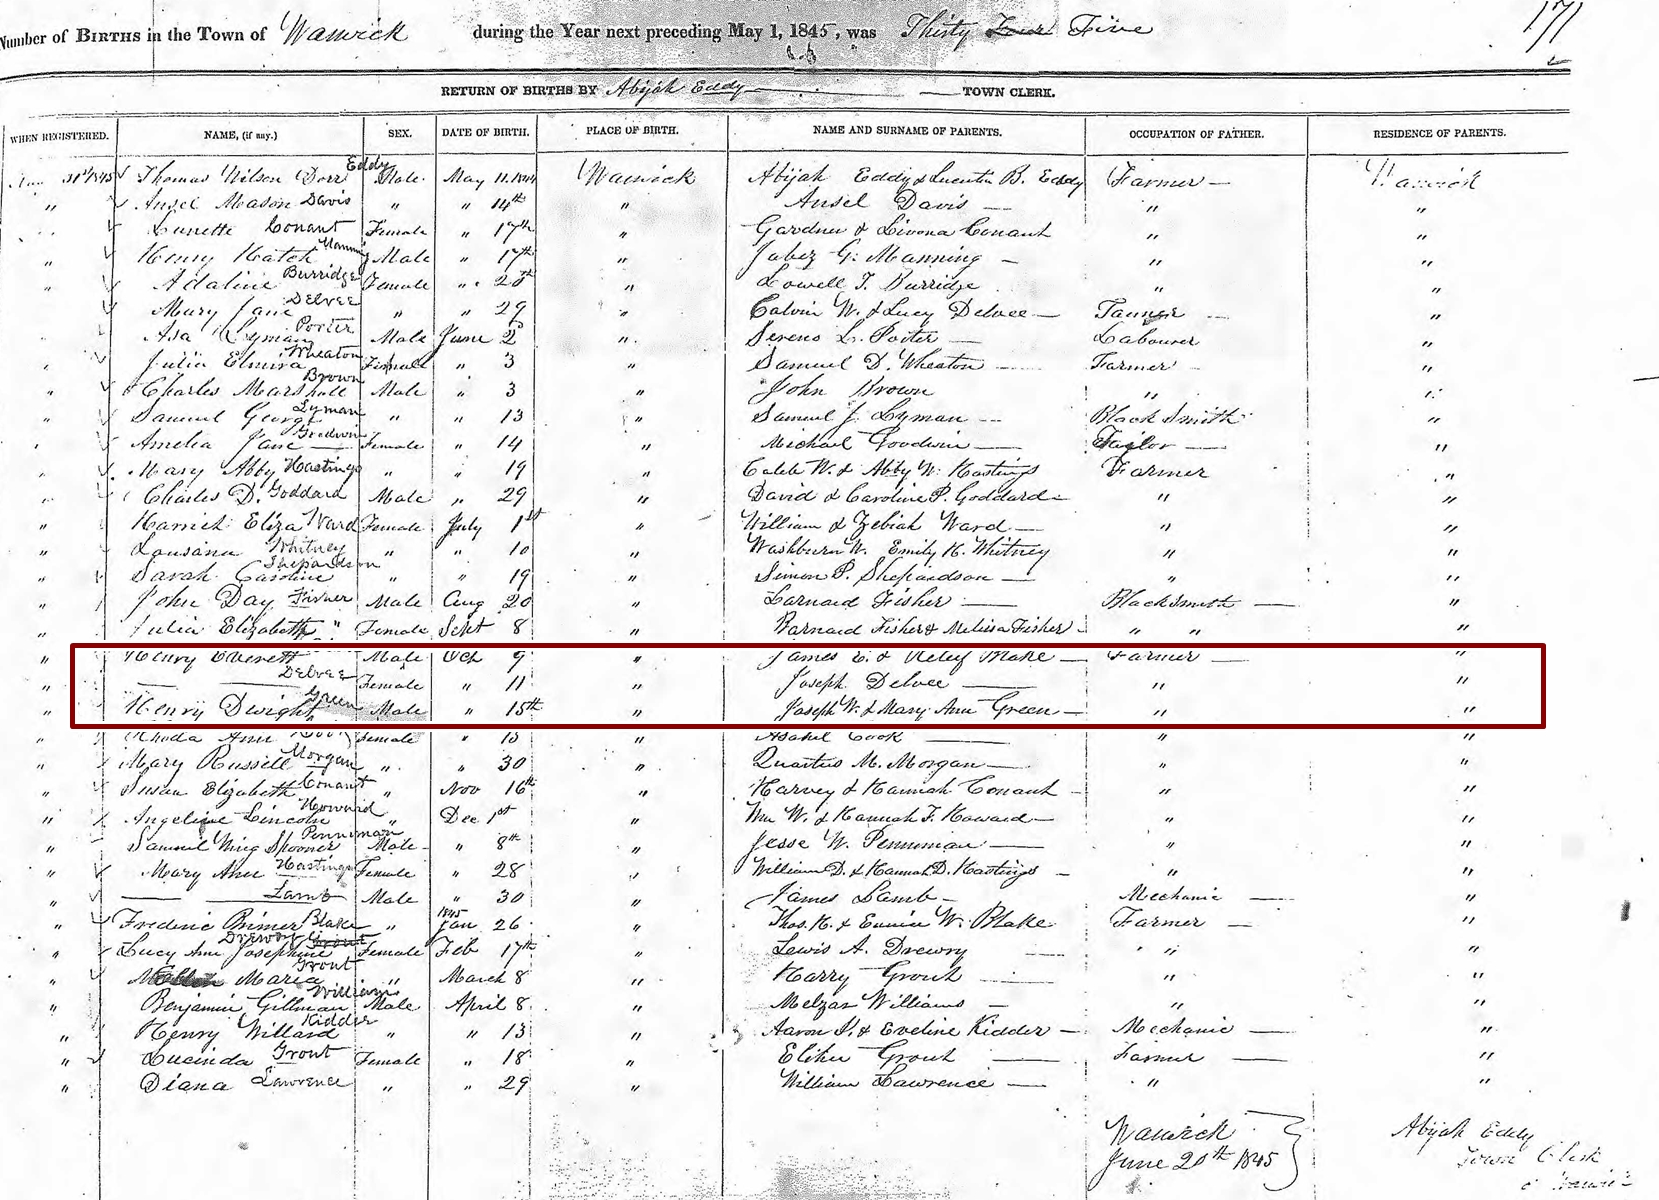 171
Number of BIRTHS in the Town of Warwick during the Year next preceding May 1, 1845, was Thirty Four Five
RETURN OF BIRTHS BY Abijah Eddy TOWN CLERK.
WHEN REGISTERED. NAME, (if any.) SEX. DATE OF BIRTH. PLACE OF BIRTH. NAME AND SURNAME OF PARENTS. OCCUPATION OF FATHER. RESIDENCE OF PARENTS.
31st 1845 Thomas Wilson Dorr Eddy Male May 11. 1844 Warwick Abijah Eddy & Lucretia B. Eddy Farmer Warwick
" Ansel Mason Davis " " 14th " Ansel Davis " "
Lunette Conant Female " 17th " Gardner & Livona Conant " "
" Henry Hatch Manning Male " 17th " Jabez G. Manning " "
" Adaline Burridge Female " 20th " Lowell T. Burridge " "
Mary Jane Delvee " " 29 " Calvin W. & Lucy Delvee Tanner "
Asa Lyman Porter Male June 2 " Sereno L. Porter Labourer "
Julia Elmira Wheaton Female " 3 " Samuel D. Wheaton Farmer "
" Charles Marshall Brown Male " 3 " John Brown " "
" Samuel George Lyman " " 13 " Samuel J. Lyman Black Smith "
Amelia Jane Goodwin Female " 14 " Michael Goodwin Tailor "
" Mary Abby Hastings " " 19 " Caleb W. & Abby W. Hastings Farmer "
Charles D. Goddard Male " 29 " David & Caroline P. Goddard " "
" Harriet Eliza Ward Female July 1st " William & Zebiah Ward " "
" Lousana Whitney " " 10 " Washburn W. Emily H. Whitney " "
" Sarah Caroline Shepardson " " 19 " Simon P. Shepardson " "
" John Day Fisher Male Aug 20 " Larnard Fisher Blacksmith "
" Julia Elizabeth " Female Sept 8 " Barnard Fisher & Melissa Fisher " " "
" Henry Everett Male Oct 9 " James E. & Relief Blake Farmer "
" Delvee Female " 11 " Joseph Delvee " "
" Henry Dwight Green Male " 15th " Joseph W. & Mary Ann Green " "
" Rhoda Ann Cook Female " 15 " Asahel Cook " "
" Mary Russell Morgan " " 30 " Quartus M. Morgan " "
" Susan Elizabeth Conant " Nov 16th " Harvey & Hannah Conant " "
" Angeline Lincoln Howard " Dec 1st " Wm W. & Hannah F. Howard " "
" Samuel King Spooner Penniman Male " 8th " Jesse W. Penniman " "
" Mary Ann Hastings Female " 28 " William D. & Hannah D. Hastings " "
" Lamb Male " 30 " James Lamb Mechanic "
" Frederic Primer Blake " 1845 Jan 26 " Thos. H. & Eunice W. Blake Farmer "
" Lucy Ann Josephine Drewry Grout Female Feb 17th " Lewis A. Drewry " "
" Maria Grout " March 8 " Harry Grout " "
" Benjamin Gillman Williams Male April 8 " Melzar Williams " "
" Henry Willard Kidder " " 13 " Aaron & Eveline Kidder Mechanic "
" Lucinda Grout Female " 18 " Elihu Grout Farmer "
" Diana Lawrence " " 29 " William Lawrence " "
Warwick
June 20th 1845
Abijah Eddy
Town Clerk